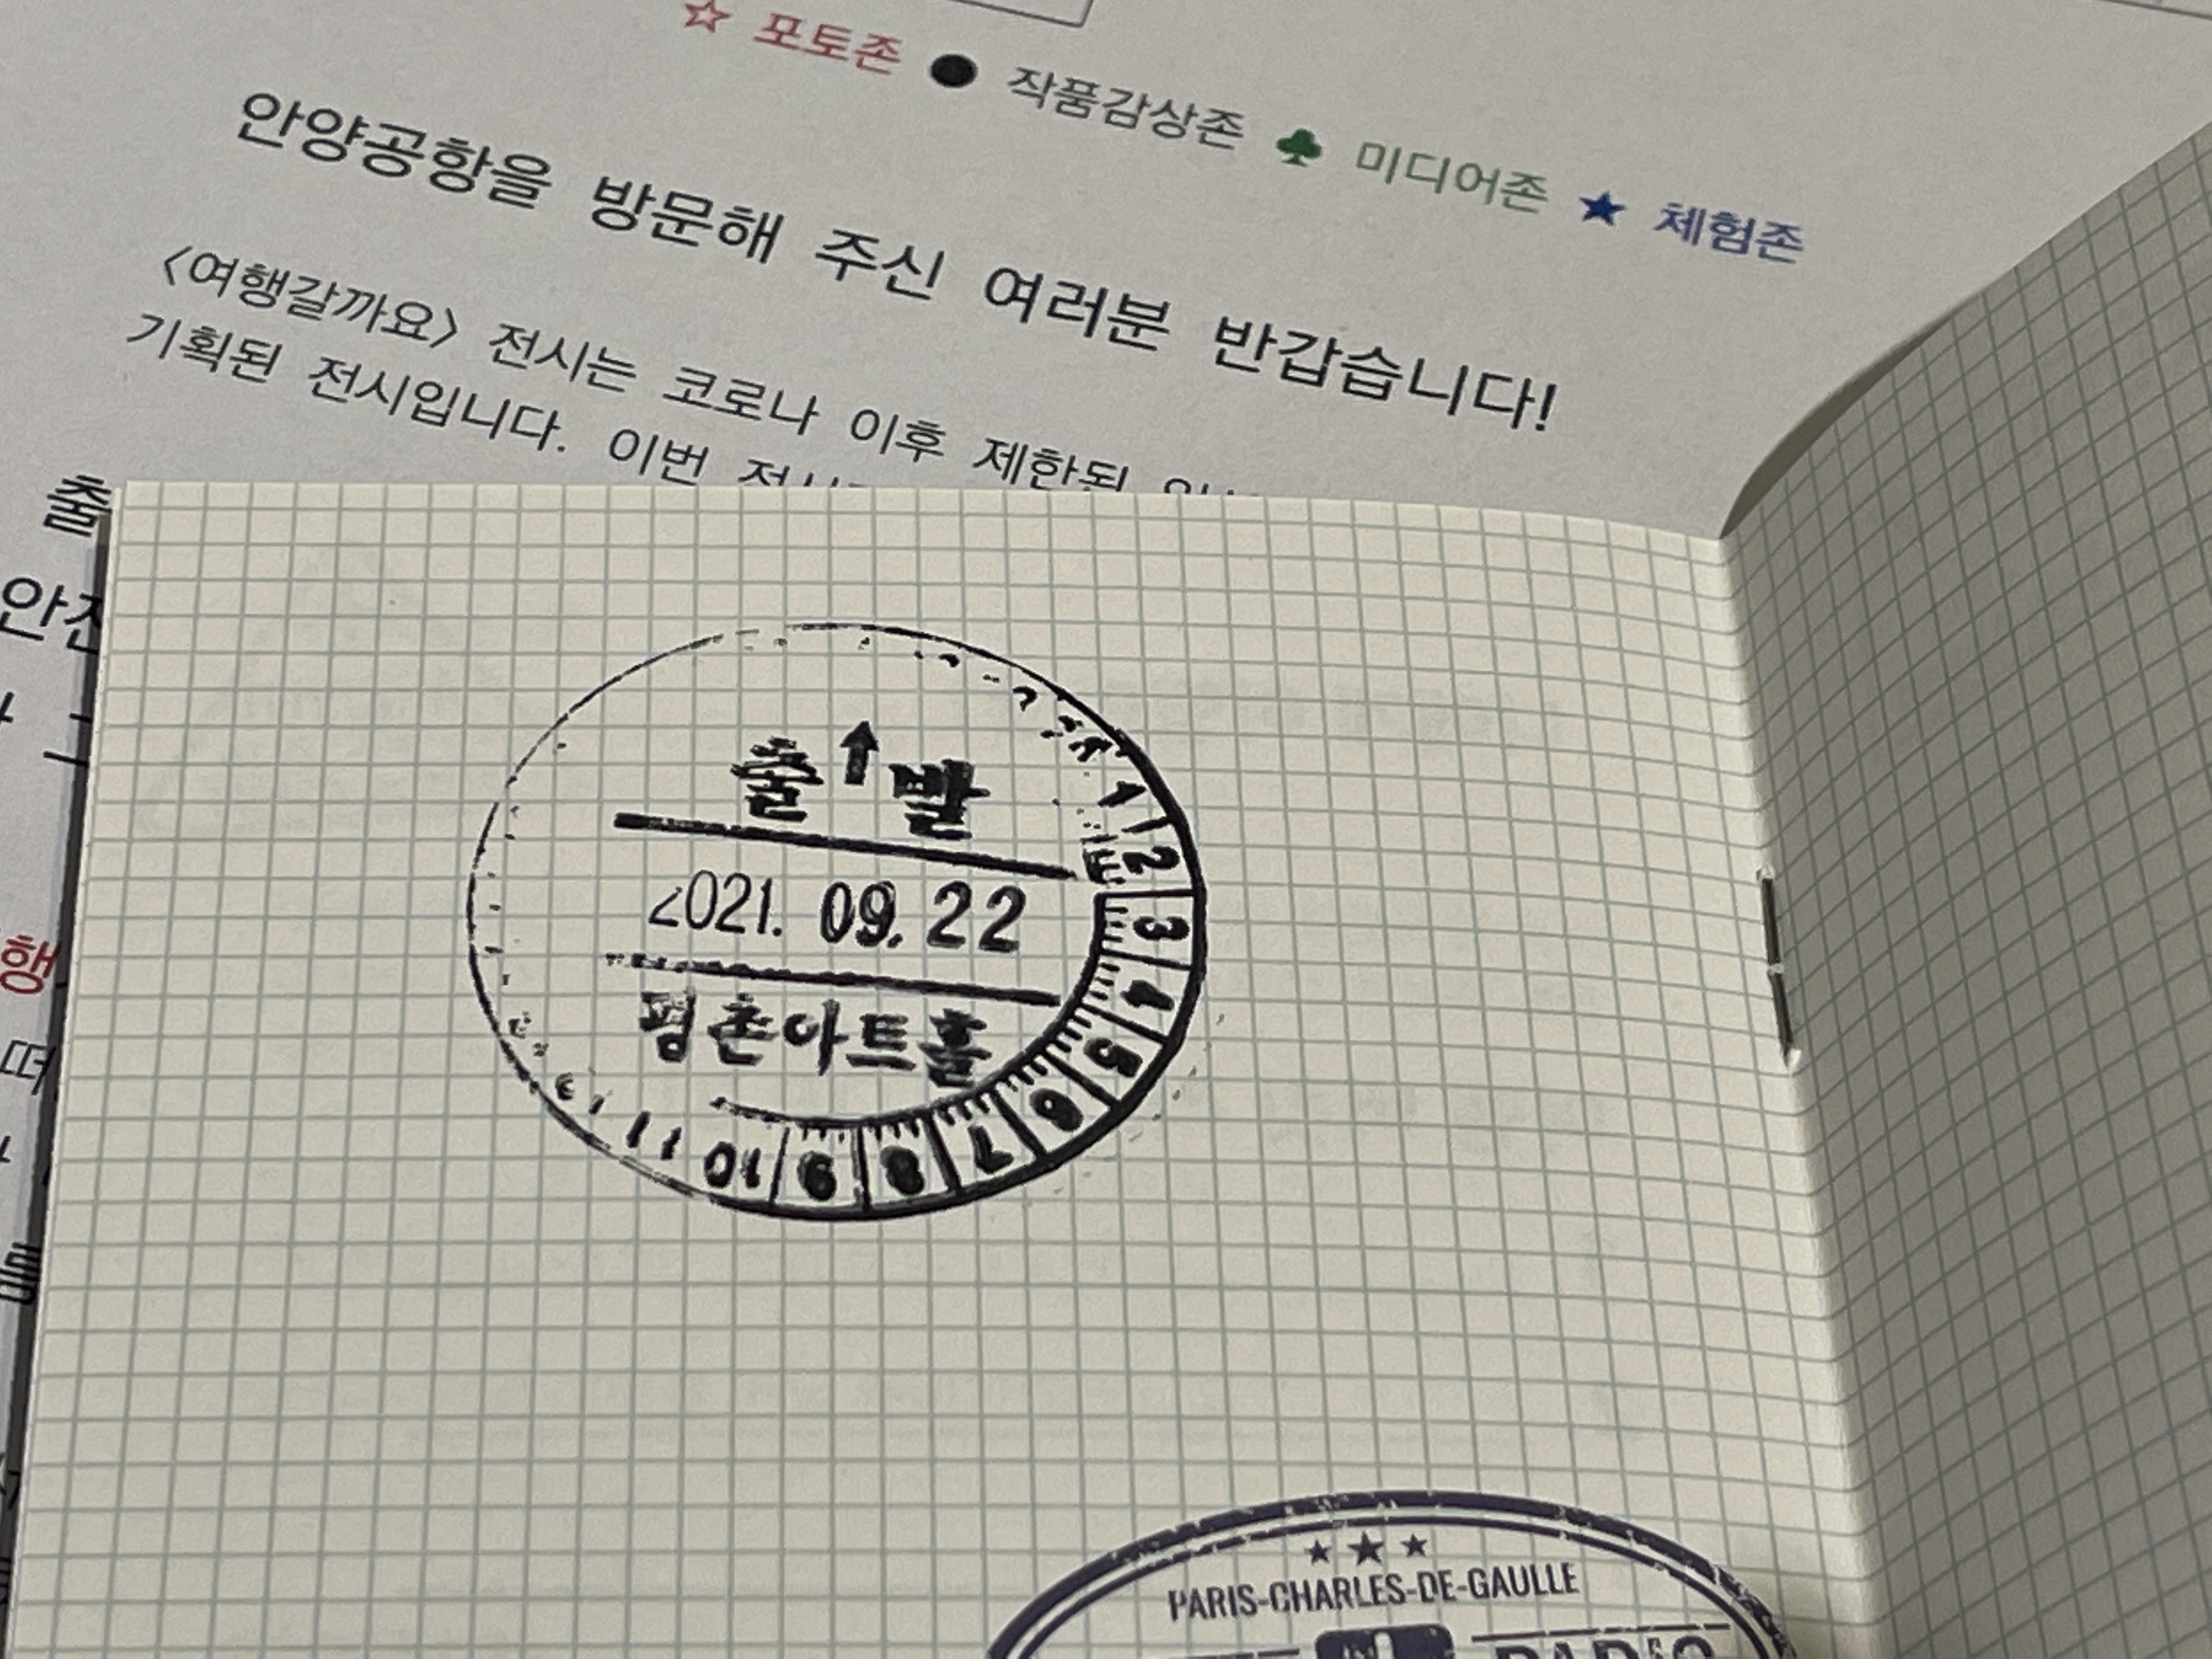 ☆ 포토존 ● 작품감상존 ♣ 미디어존 ★ 체험존
안양공항을 방문해 주신 여러분 반갑습니다!
<여행갈까요> 전시는 코로나 이후 제한된
기획된 전시입니다. 이번 전시
출
안전
행
떠
출↑발
2021. 09. 22
평촌아트홀
1 2 3 4 5 6 7 8 9 10 11
★★★
PARIS-CHARLES-DE-GAULLE
PARIS